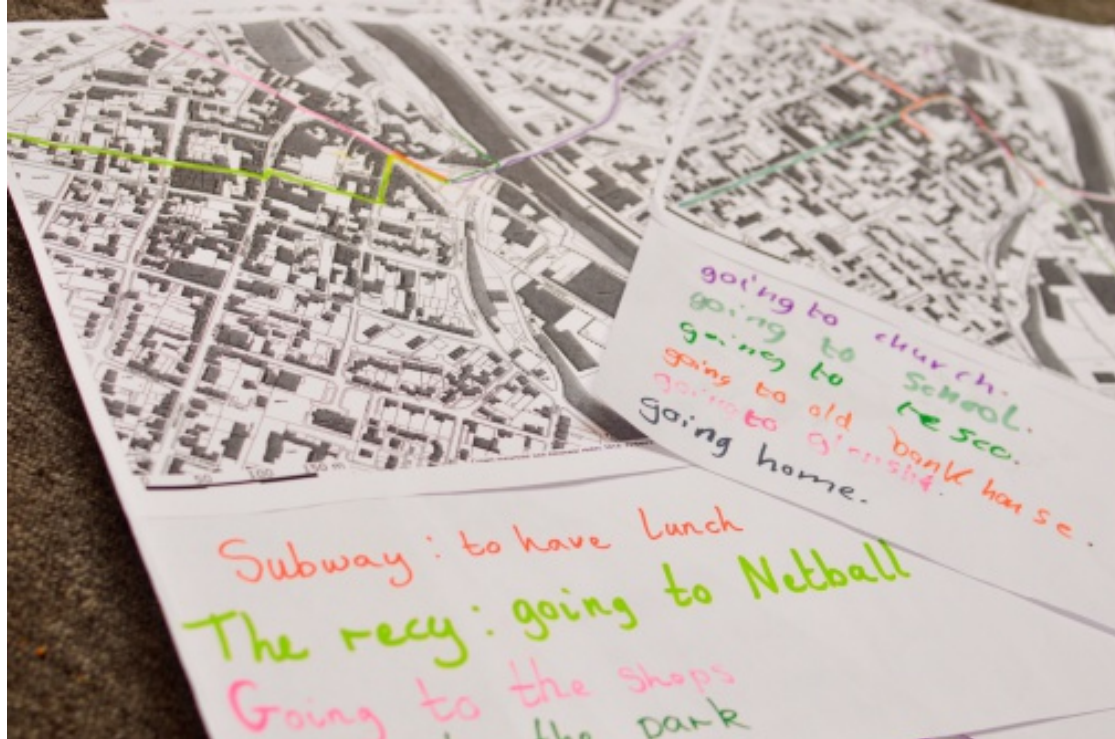 going to church.
going to school.
going to tesco.
going to old bank house.
going to
going home.
50 100 150 m
Subway : to have lunch
The recy : going to Netball
Going to the shops
the park